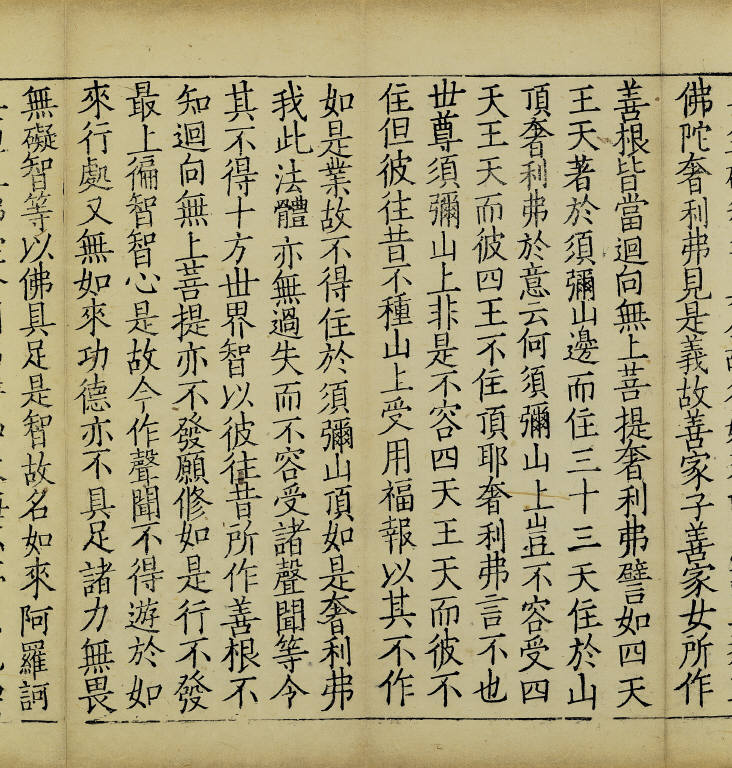 佛陀奢利弗見是義故善家子善家女所作
善根皆當迴向無上菩提奢利弗譬如四天
王天著於須彌山邊而住三十三天住於山
頂奢利弗於意云何須彌山上豈不容受四
天王天而彼四王不住頂耶奢利弗言不也
世尊須彌山上非是不容四天王天而彼不
住但彼往昔不種山上受用福報以其不作
如是業故不得住於須彌山頂如是奢利弗
我此法體亦無過失而不容受諸聲聞等今
其不得十方世界智以彼往昔所作善根不
知迴向無上菩提亦不發願修如是行不發
最上徧智智心是故今作聲聞不得遊於如
來行處又無如來功德亦不具足諸力無畏
無礙智等以佛具足是智故名如來阿羅訶